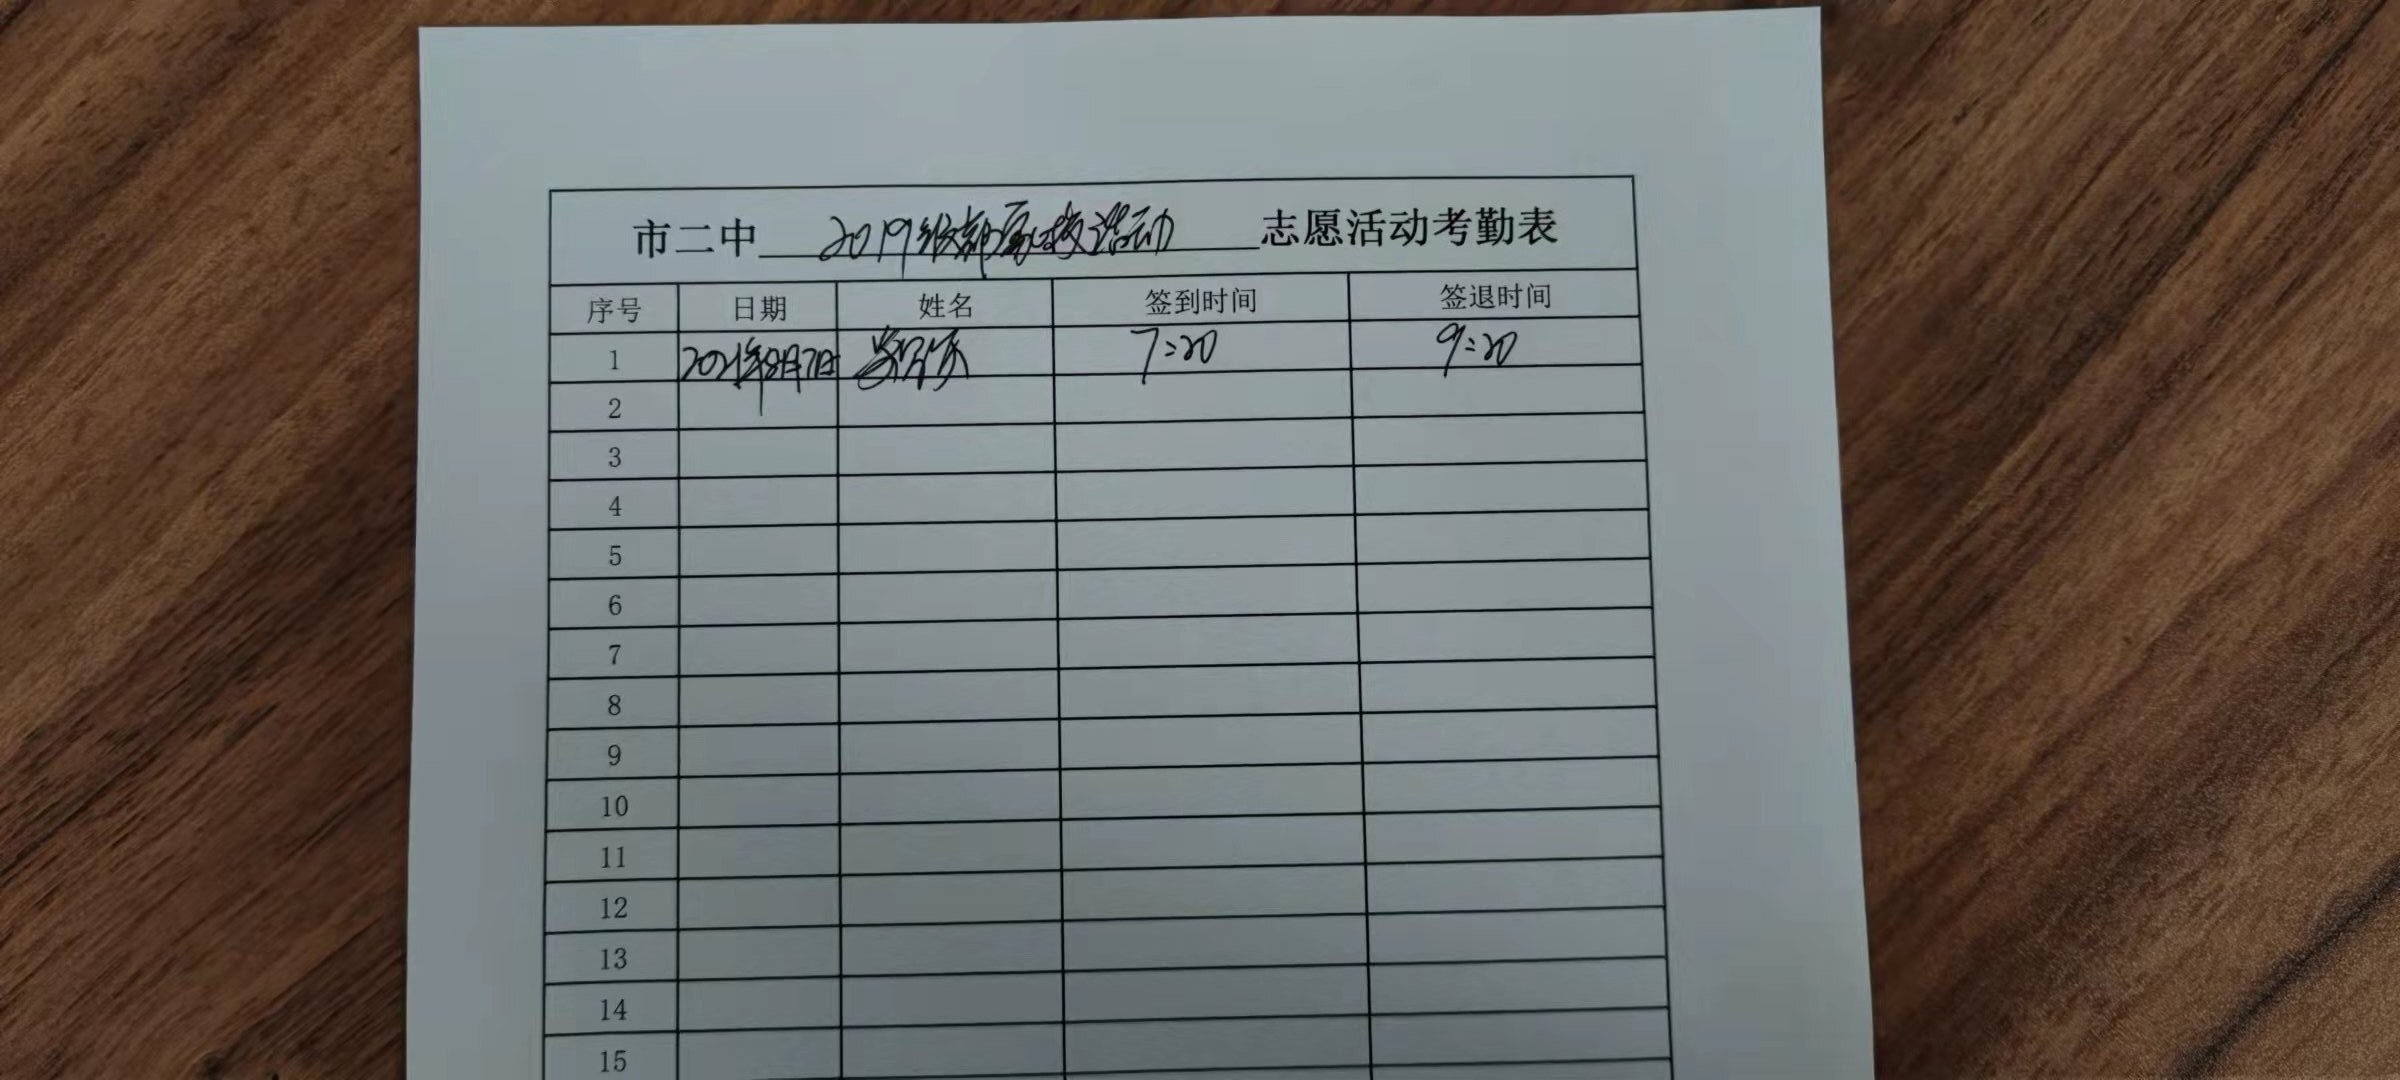 市二中 2019级部返校活动 志愿活动考勤表
序号 日期 姓名 签到时间 签退时间
1 2021年8月7日 7:20 9:20
2
3
4
5
6
7
8
9
10
11
12
13
14
15